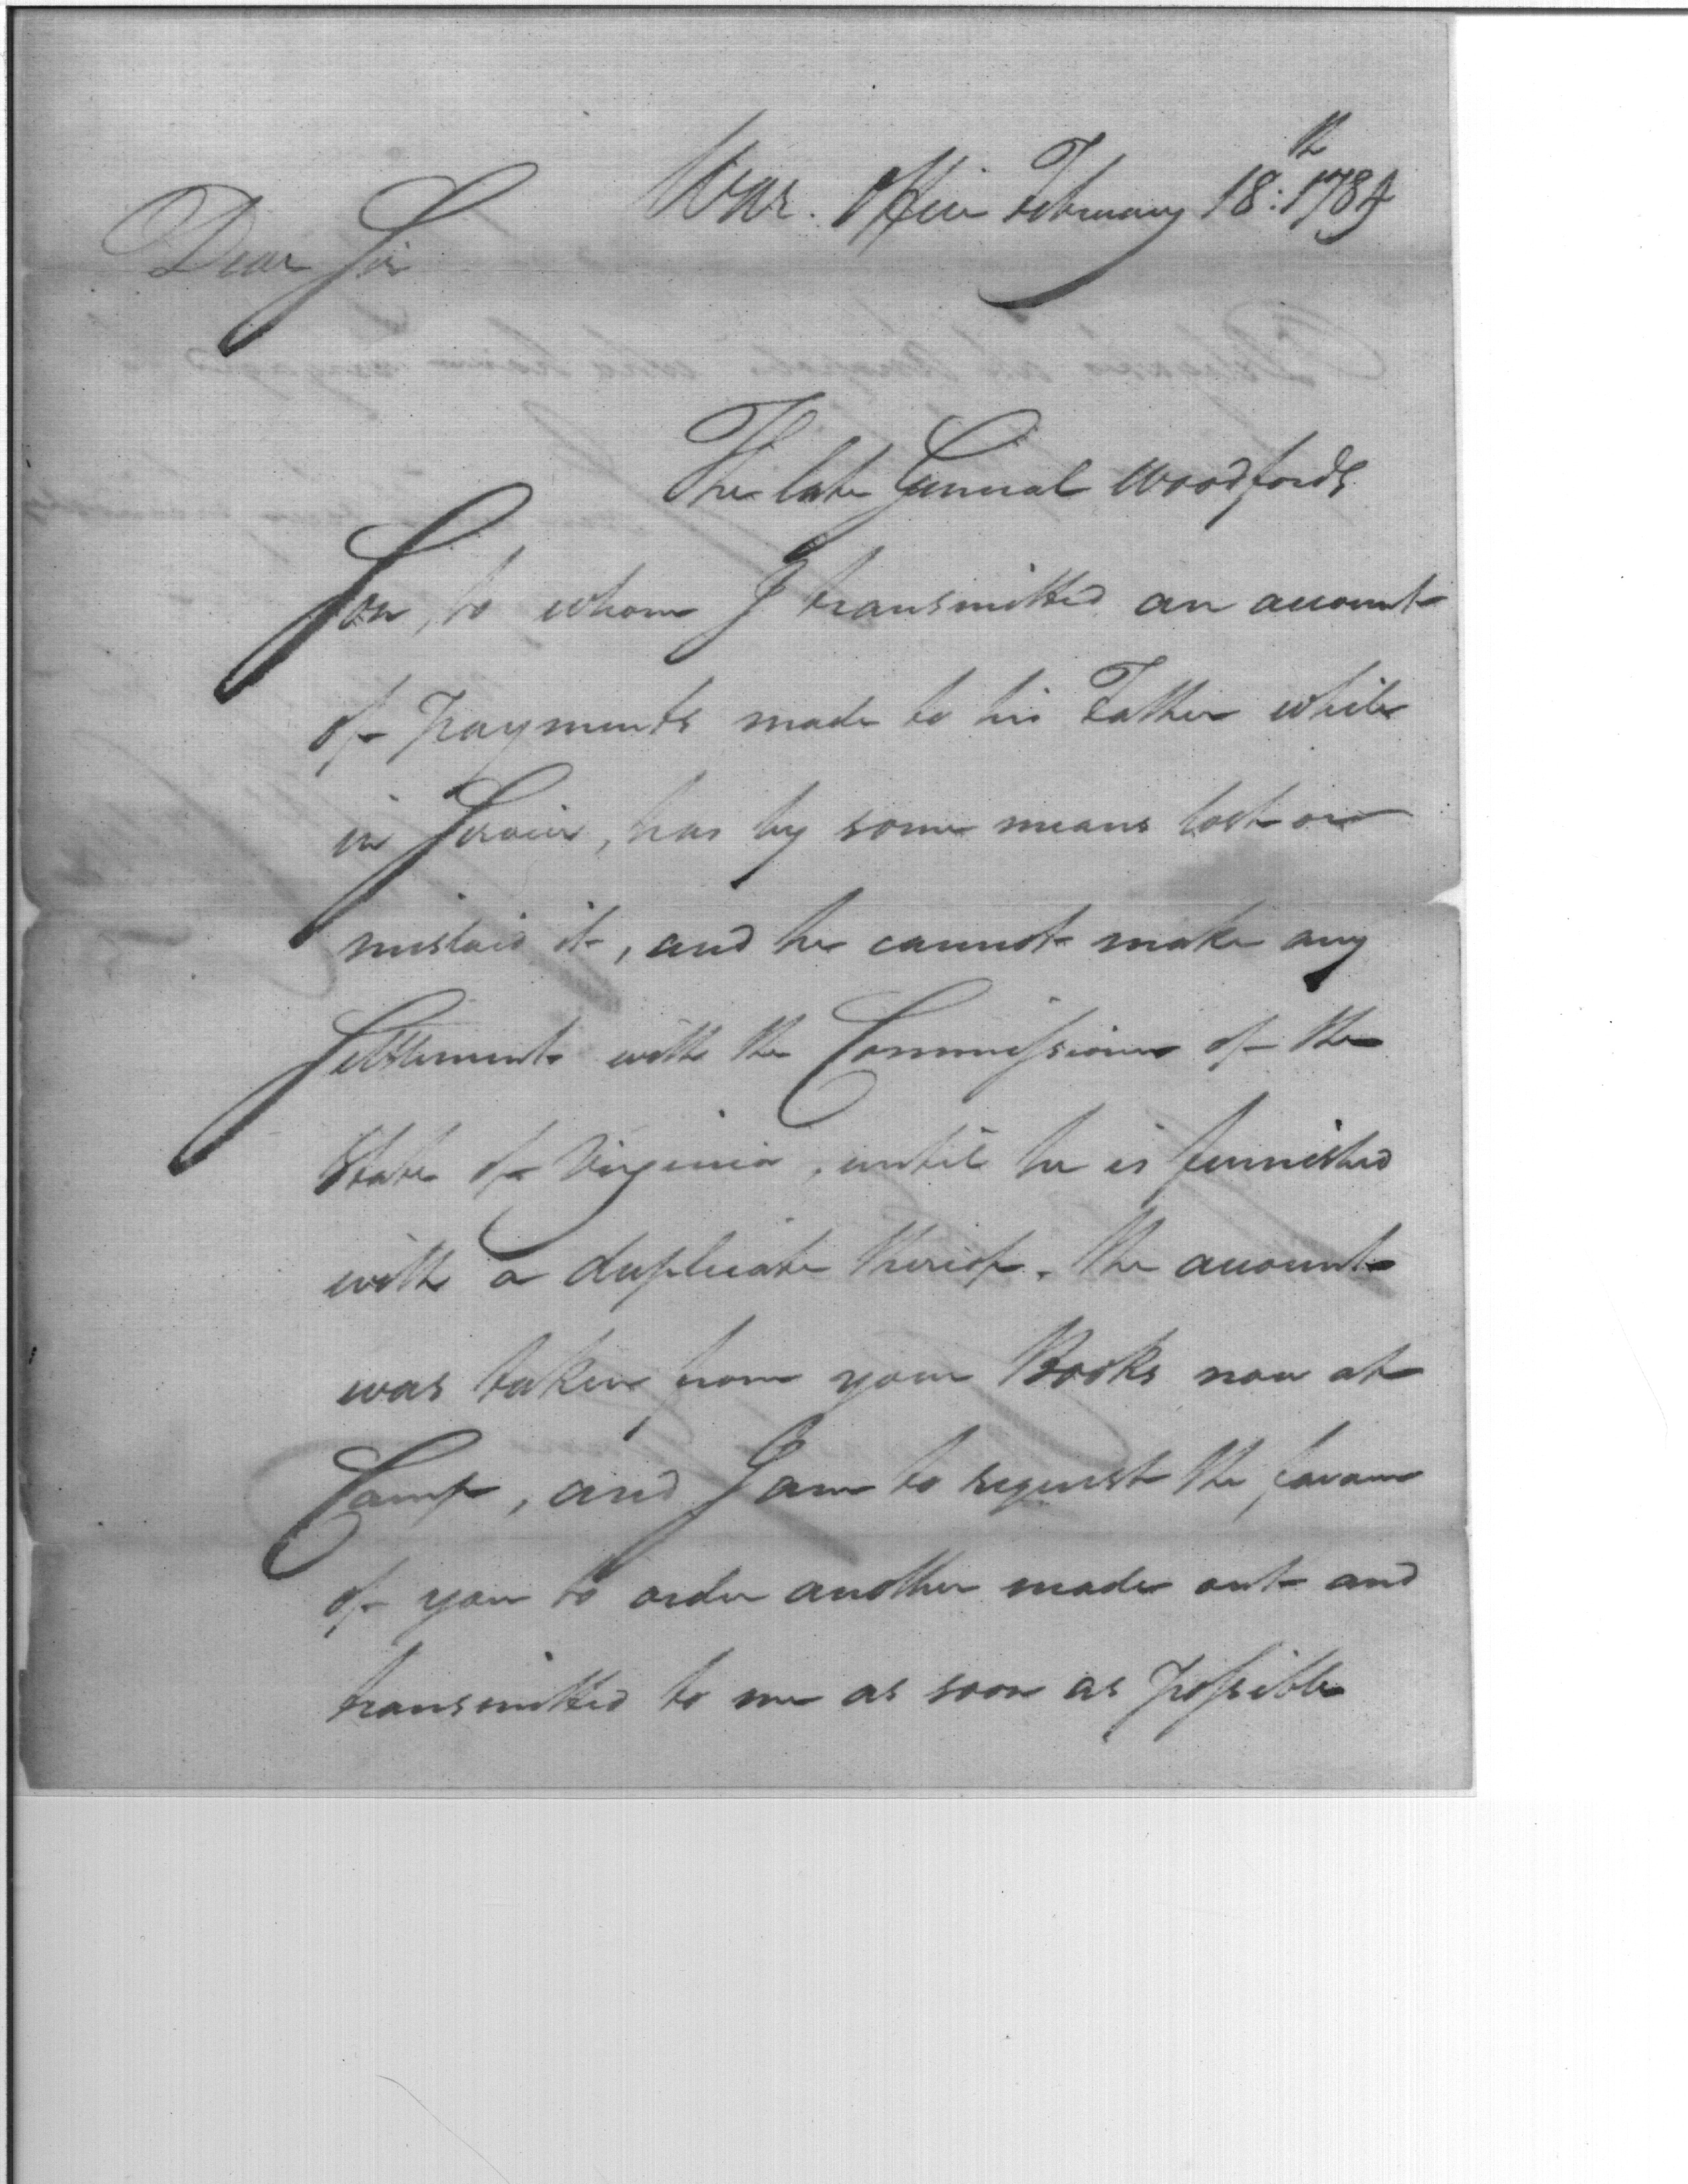 War. Office February 18:th 1784
Dear Sir
The late General Woodfords
Son, to whom I transmitted an account
of payments made to his Father while
in Service, has by some means lost or
mislaid it, and he cannot make any
Settlement with the Commissioner of the
State of Virginia, until he is furnished
with a duplicate thereof. The account
was taken from your Books now at
Camp, and I am to request the favour
of you to order another made out and
transmitted to me as soon as possible